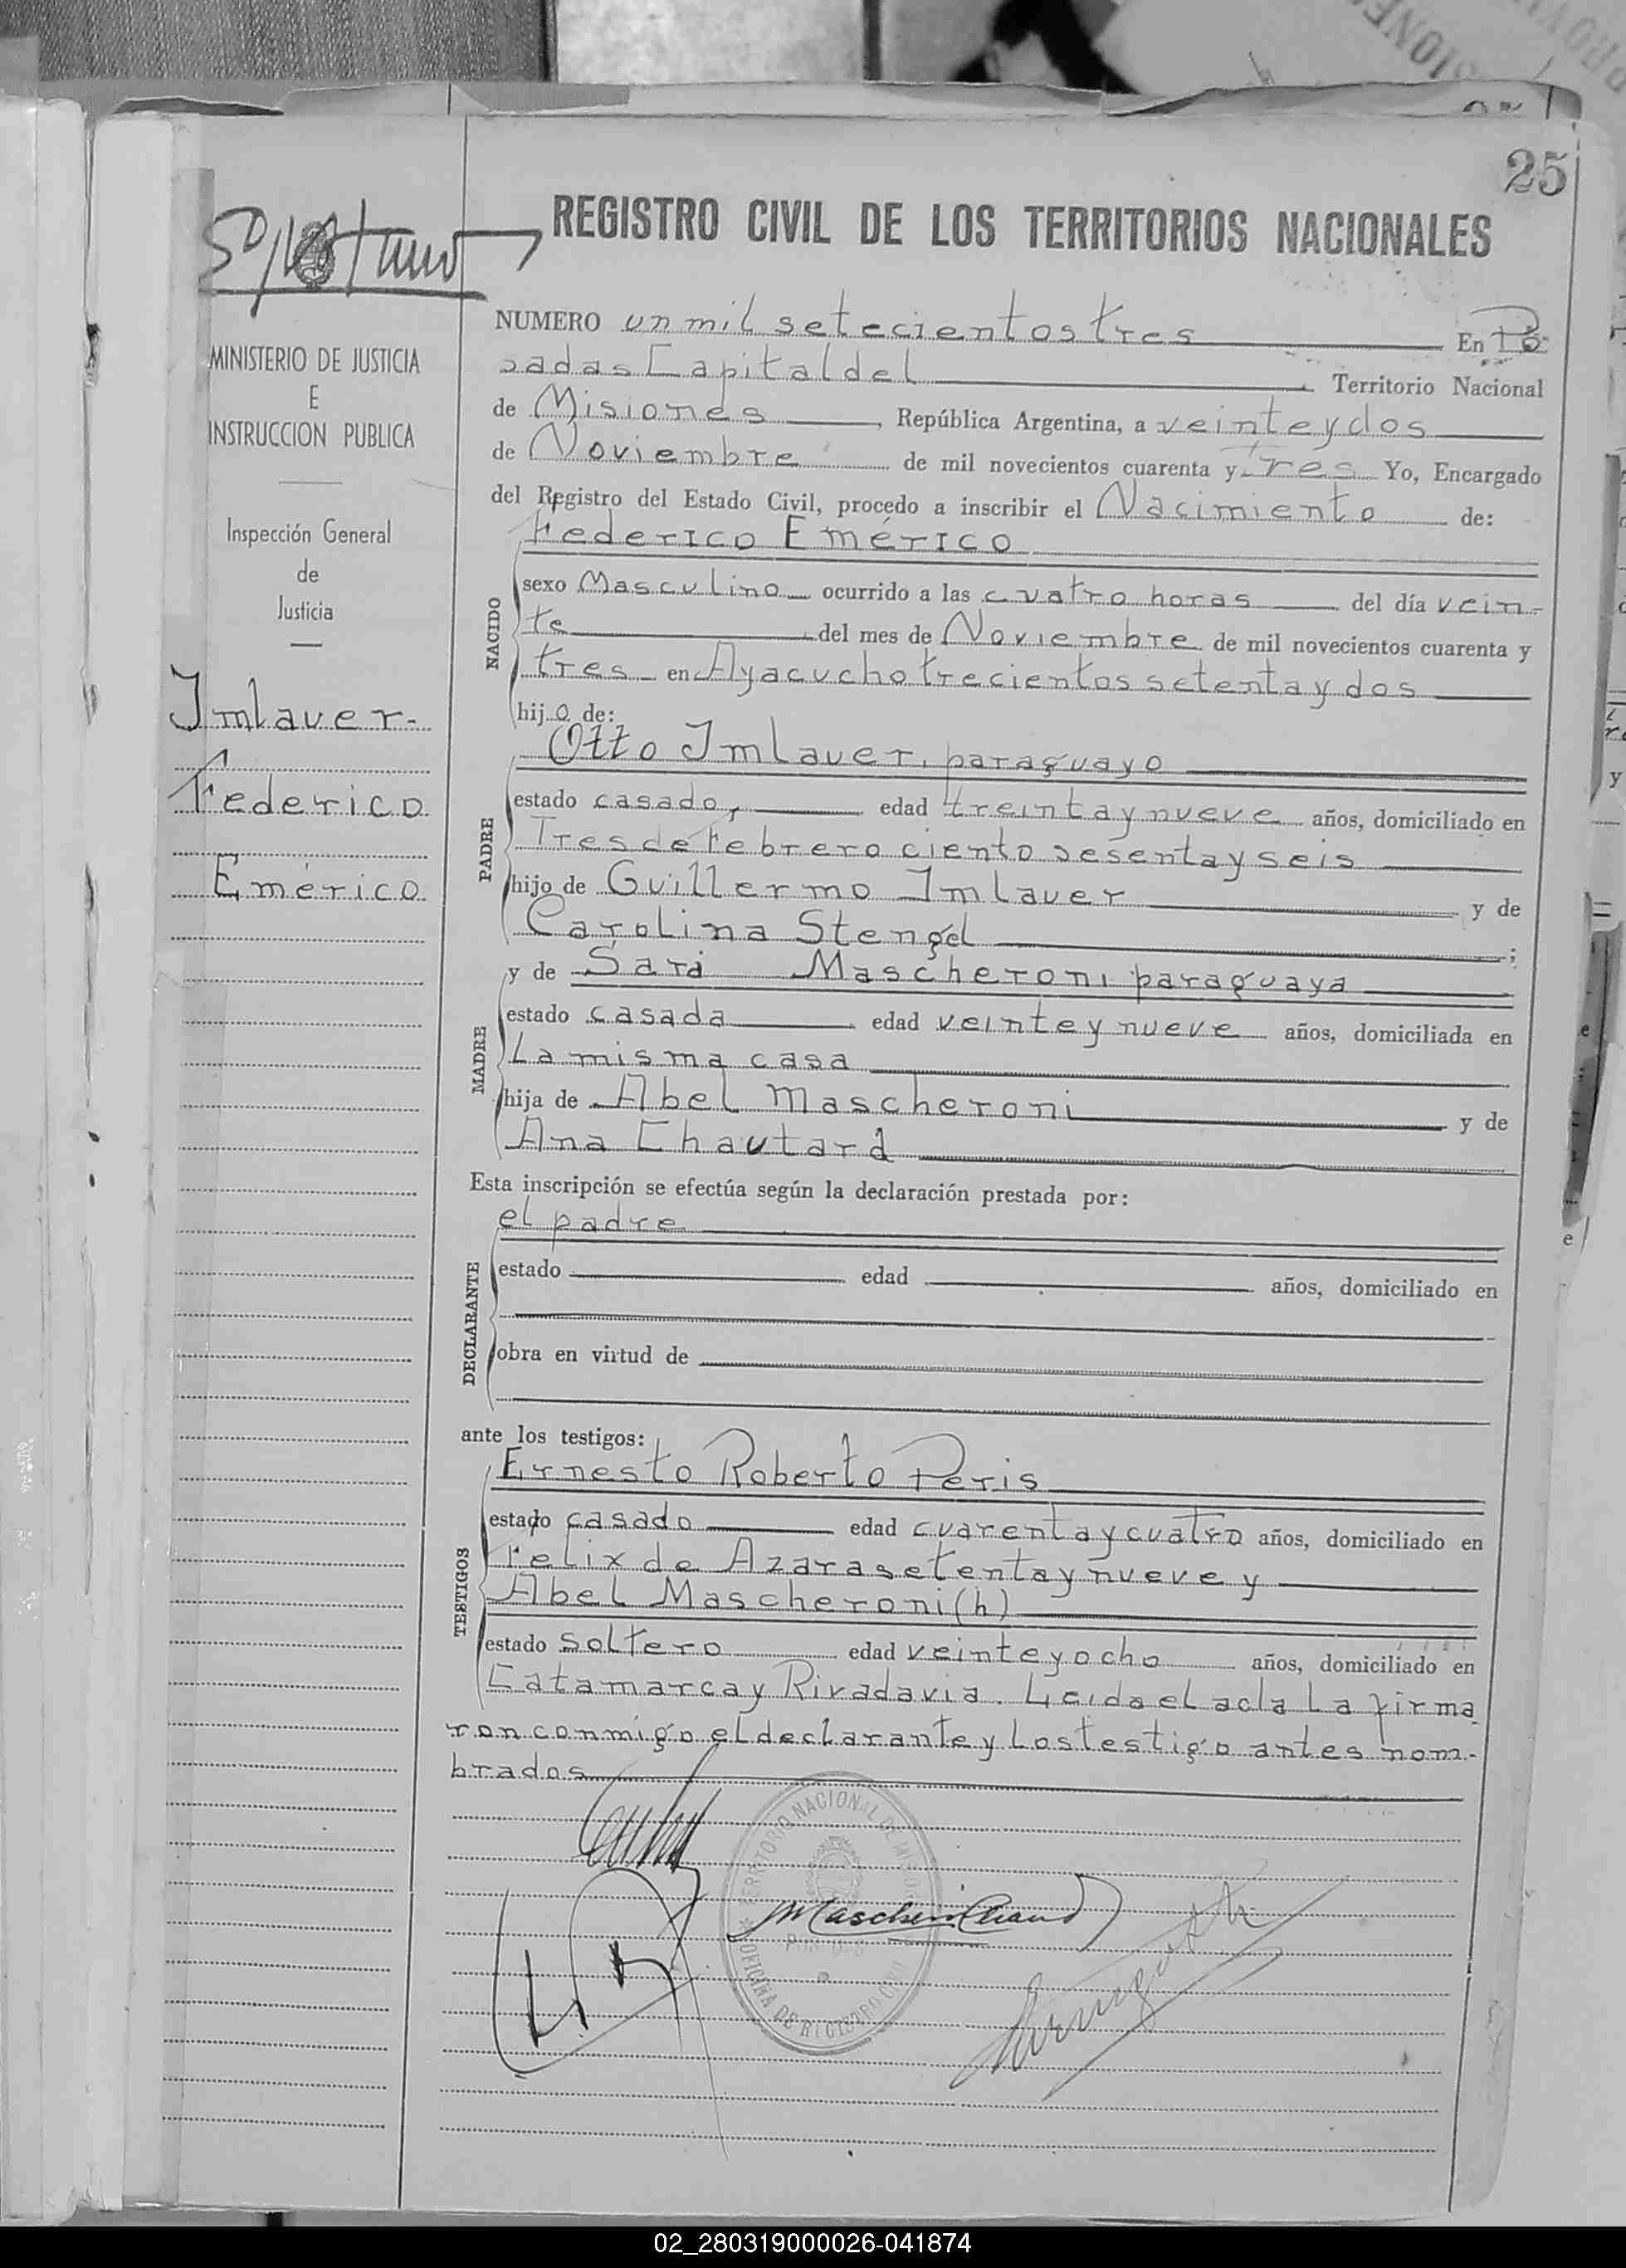 25
REGISTRO CIVIL DE LOS TERRITORIOS NACIONALES
MINISTERIO DE JUSTICIA
E
INSTRUCCION PUBLICA
Inspección General
de
Justicia
Imlauer-
Federico
Emérico
NUMERO un mil setecientos tres En Po
sadas Capital del Territorio Nacional
de Misiones, República Argentina, a veinte y dos
de Noviembre de mil novecientos cuarenta y tres Yo, Encargado
del Registro del Estado Civil, procedo a inscribir el Nacimiento de:
Federico Emérico
NACIDO
sexo Masculino ocurrido a las cuatro horas del día vein-
te del mes de Noviembre de mil novecientos cuarenta y
tres en Ayacucho trecientos setenta y dos
hijo de:
Otto Imlauer, paraguayo
PADRE
estado casado, edad treinta y nueve años, domiciliado en
Tres de Febrero ciento sesenta y seis
hijo de Guillermo Imlauer y de
Carolina Stengel ;
y de Sara Mascheroni paraguaya
MADRE
estado casada edad veinte y nueve años, domiciliada en
La misma casa
hija de Abel Mascheroni y de
Ana Chautard
Esta inscripción se efectúa según la declaración prestada por:
el padre
DECLARANTE
estado edad años, domiciliado en
obra en virtud de
ante los testigos:
Ernesto Roberto Peris
TESTIGOS
estado casado edad cuarenta y cuatro años, domiciliado en
Felix de Azara setenta y nueve y
Abel Mascheroni (h)
estado soltero edad veinte y ocho años, domiciliado en
Catamarca y Rivadavia. Leida el acta la firma
ron conmigo el declarante y los testigo antes nom-
brados
TERRITORIO NACIONAL DE MISIONES
POSADAS
OFICINA DE REGISTRO CIVIL
02_280319000026-041874